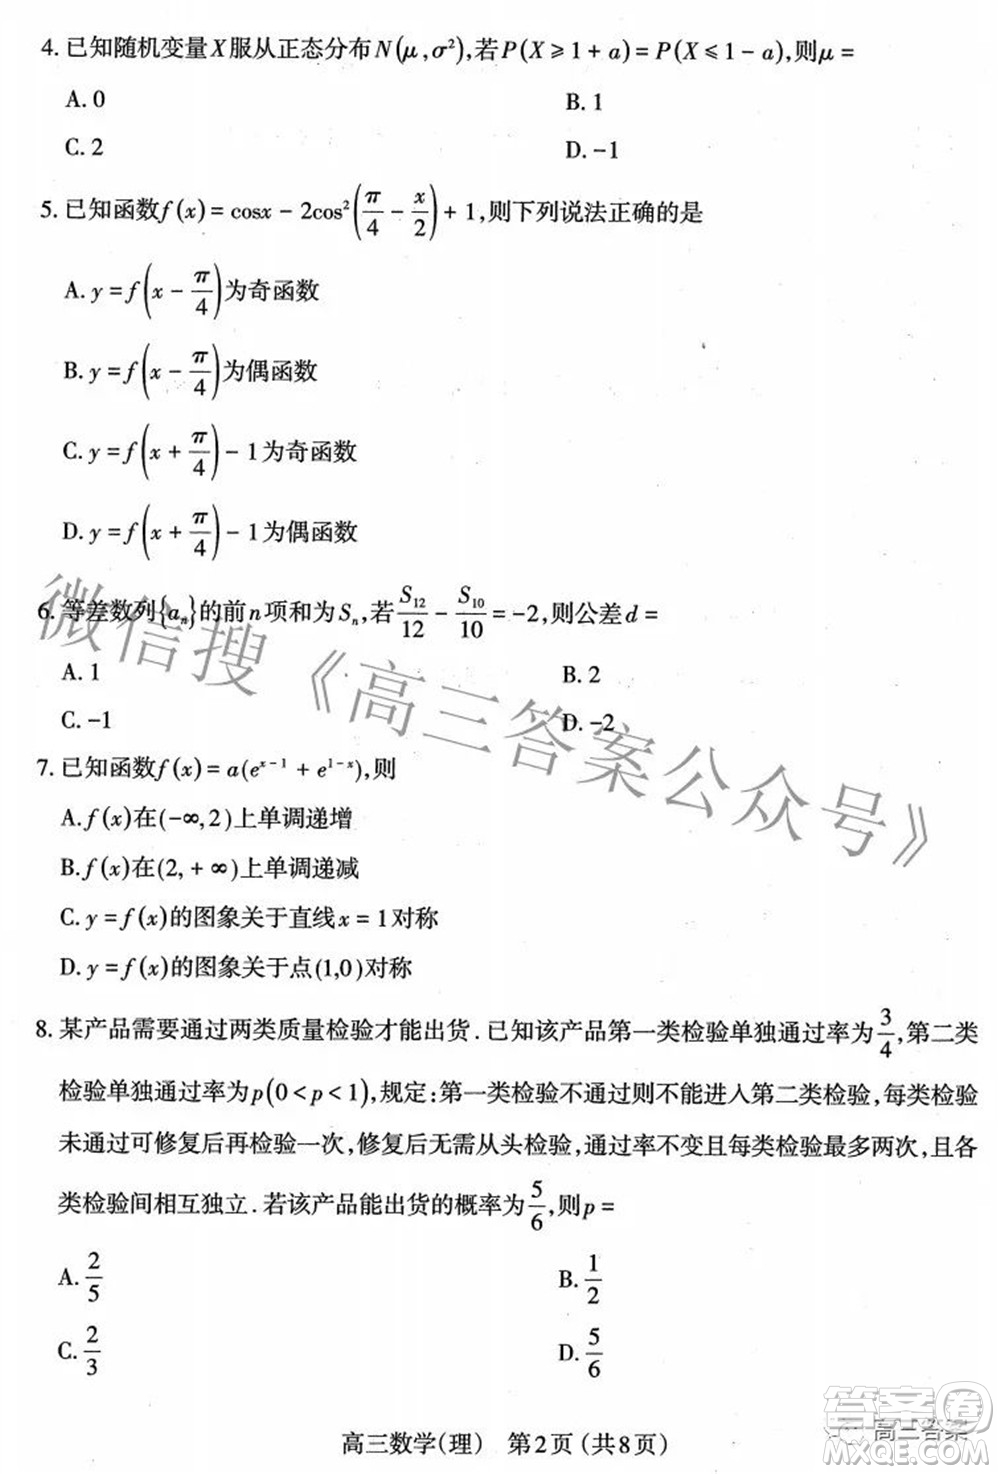 4. 已知随机变量X服从正态分布N(μ,σ²),若P(X⩾1+a)=P(X⩽1-a),则μ=
A. 0 B. 1
C. 2 D. -1
5. 已知函数f(x)=cosx-2cos²(π/4-x/2)+1,则下列说法正确的是
A. y=f(x-π/4)为奇函数
B. y=f(x-π/4)为偶函数
C. y=f(x+π/4)-1为奇函数
D. y=f(x+π/4)-1为偶函数
6. 等差数列{aₙ}的前n项和为Sₙ,若S₁₂/12-S₁₀/10=-2,则公差d=
A. 1 B. 2
C. -1 D. -2
7. 已知函数f(x)=a(eˣ⁻¹+e¹⁻ˣ),则
A. f(x)在(-∞,2)上单调递增
B. f(x)在(2,+∞)上单调递减
C. y=f(x)的图象关于直线x=1对称
D. y=f(x)的图象关于点(1,0)对称
8. 某产品需要通过两类质量检验才能出货.已知该产品第一类检验单独通过率为3/4,第二类
检验单独通过率为p(0<p<1),规定:第一类检验不通过则不能进入第二类检验,每类检验
未通过可修复后再检验一次,修复后无需从头检验,通过率不变且每类检验最多两次,且各
类检验间相互独立.若该产品能出货的概率为5/6,则p=
A. 2/5 B. 1/2
C. 2/3 D. 5/6
高三数学(理) 第2页(共8页)
微信搜《高三答案公众号》
高三答案
答案圈
MXQE.COM